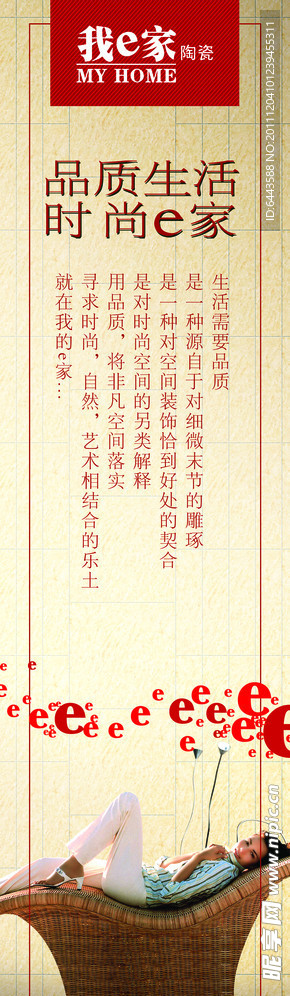 我e家 陶瓷
MY HOME
品质生活
时尚e家
生活需要品质
是一种源自于对细微末节的雕琢
是一种对空间装饰恰到好处的契合
是对时尚空间的另类解释
用品质，将非凡空间落实
寻求时尚，自然，艺术相结合的乐土
就在我的e家…
ID:6443588 NO:20111204101239455311
昵享网 www.nipic.cn